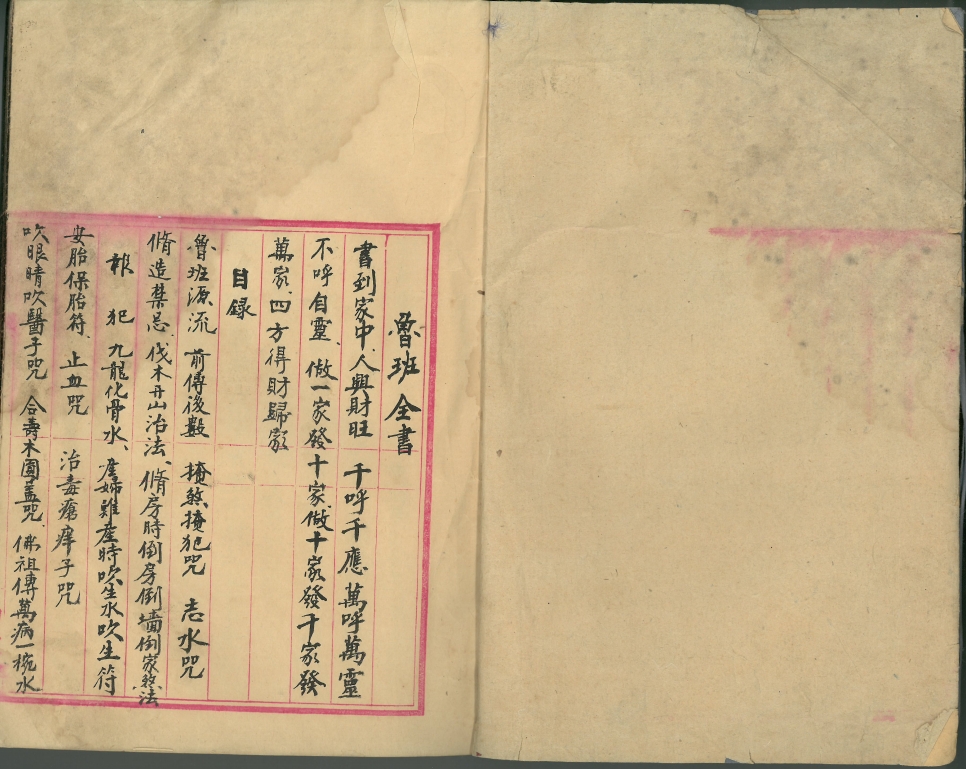 魯班全書
書到家中、人興財旺 千呼千應 萬呼萬靈
不呼自靈、做一家發十家、做十家發千家發
萬家、四方得財歸家
目録
魯班源流 前傳後教 掩煞掩犯咒 忢水咒
脩造禁忌、伐木升山治法、脩房時倒房倒墻倒家煞法
報犯 九龍化骨水、產婦難產時吹生水吹生符
安胎保胎符、止血咒 治毒瘡痒子咒
吹眼睛吹醫子咒 合壽木圓盖咒、佛祖傳萬病一椀水